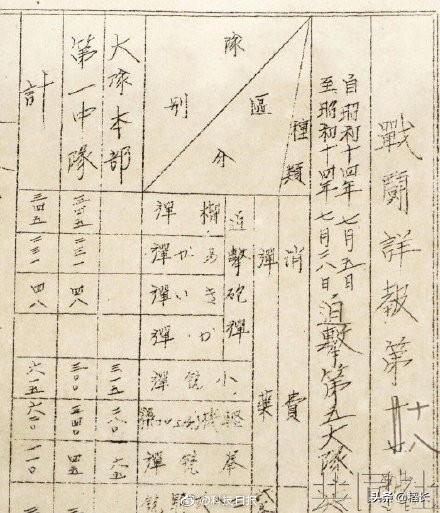 戰鬪詳報第
自昭和十四年七月五日
至昭和十四年七月二八日
迫擊第五大隊
種類
消費
彈藥
隊
區
分
別
迫擊砲彈
榴彈
あか彈
きい彈
小銃彈
拳銃彈
大隊本部
三一五
二六〇
六五
第一中隊
三四五
二三一
四八
三〇〇
三四〇
四五
計
三四五
二三一
四八
六一五
六〇〇
一一〇
头条 @稻长